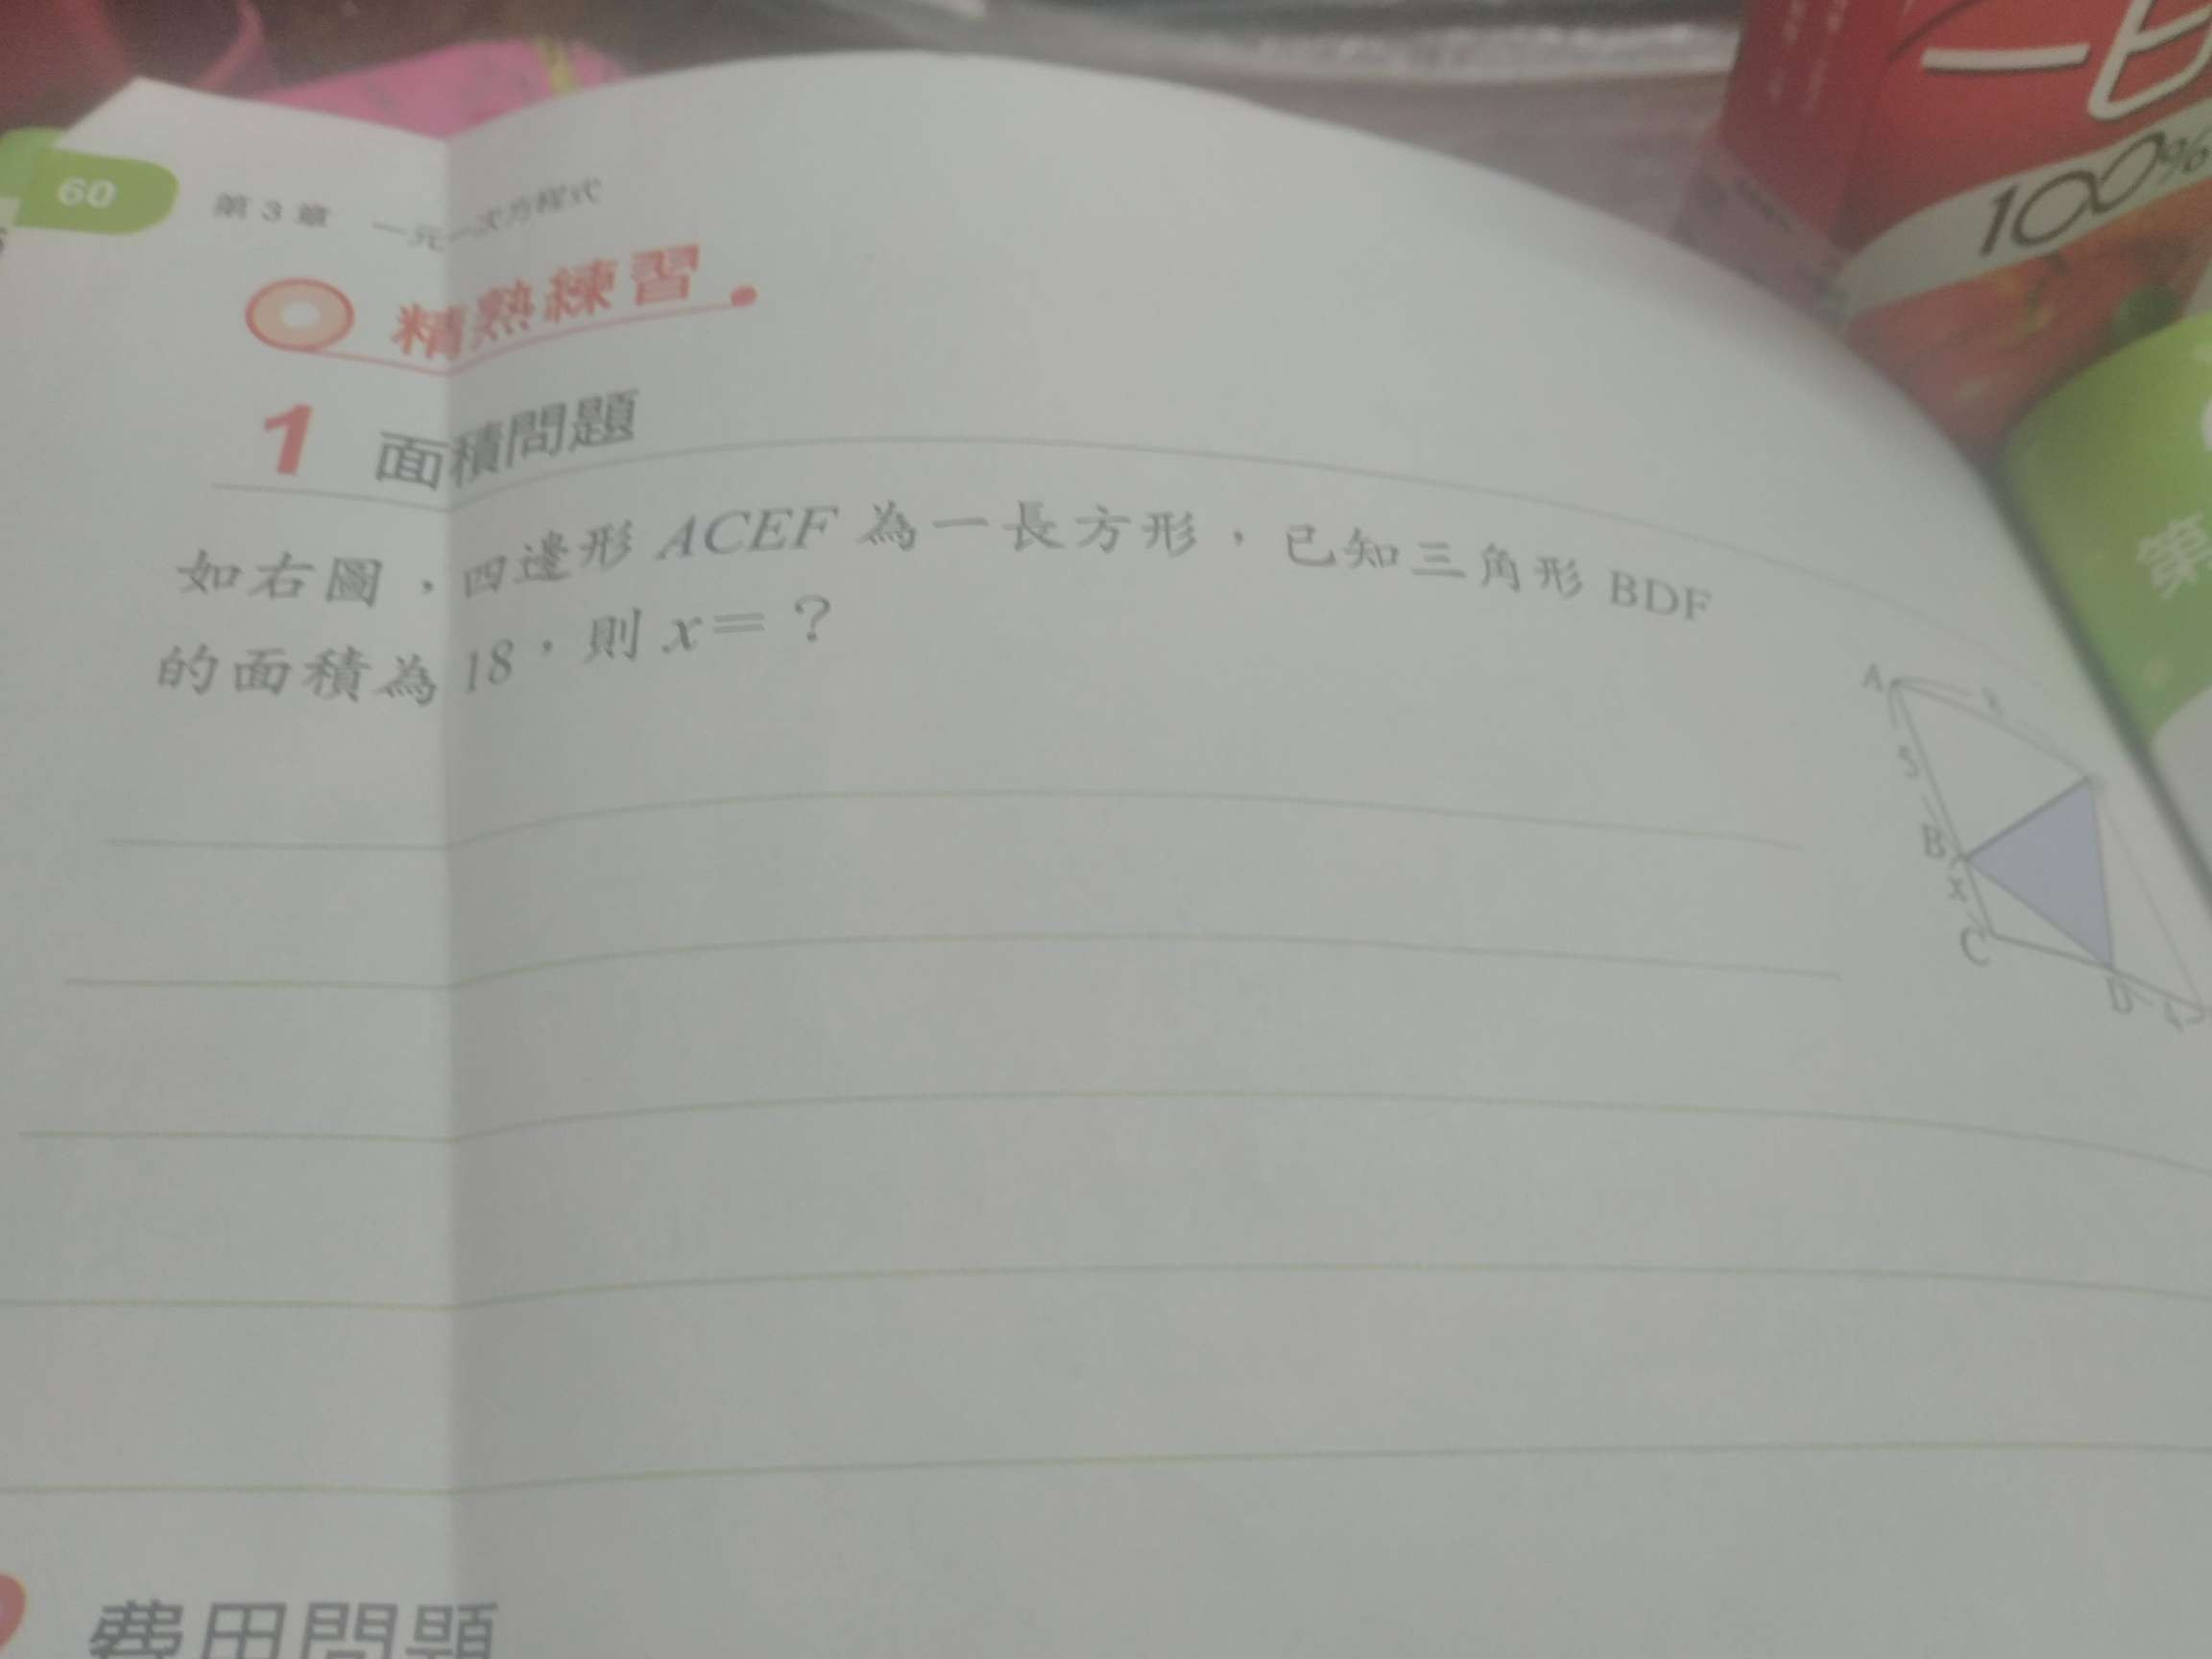 60 第3章 一元一次方程式
精熟練習
1 面積問題
如右圖，四邊形 ACEF 為一長方形，已知三角形 BDF
的面積為 18，則 x＝？
A
5
B
x
C
D
費用問題
100%
第